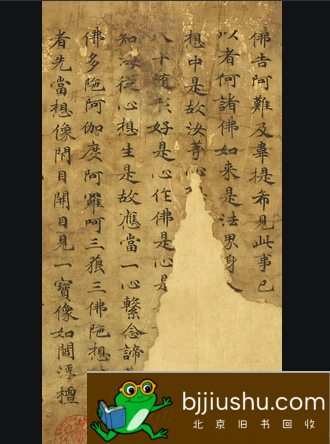 佛告阿難及韋提希見此事已
以者何諸佛如來是法界身
想中是故汝等心
八十随形好是心作佛是心是
知海從心想生是故應當一心繫念諦
佛多陁阿伽度阿羅呵三藐三佛陁想
者先當想像閇目開目見一寶像如閻浮檀
bjjiushu.com
北京旧书回收